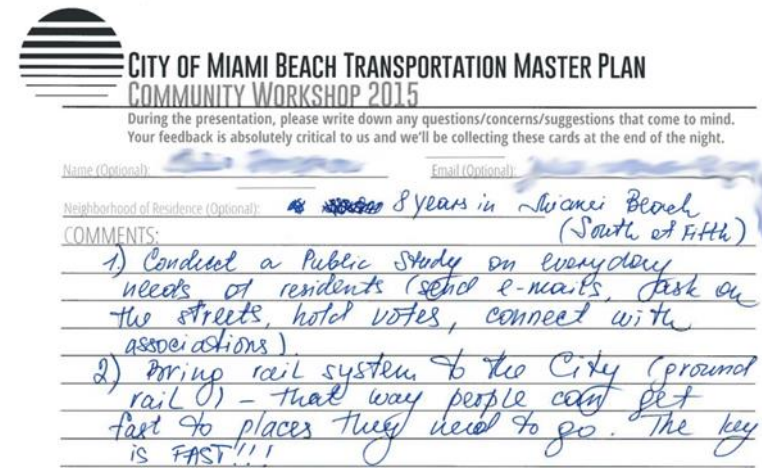 CITY OF MIAMI BEACH TRANSPORTATION MASTER PLAN
COMMUNITY WORKSHOP 2015
During the presentation, please write down any questions/concerns/suggestions that come to mind.
Your feedback is absolutely critical to us and we'll be collecting these cards at the end of the night.
Name (Optional): Email (Optional):
Neighborhood of Residence (Optional): 8 years in Miami Beach
(South of Fifth)
COMMENTS:
1.) Conduct a Public Study on everyday
needs of residents (send e-mails, ask on
the streets, hold votes, connect with
associations).
2) Bring rail system to the City (ground
rail!) – that way people can get
fast to places they need to go. The key
is FAST!!!